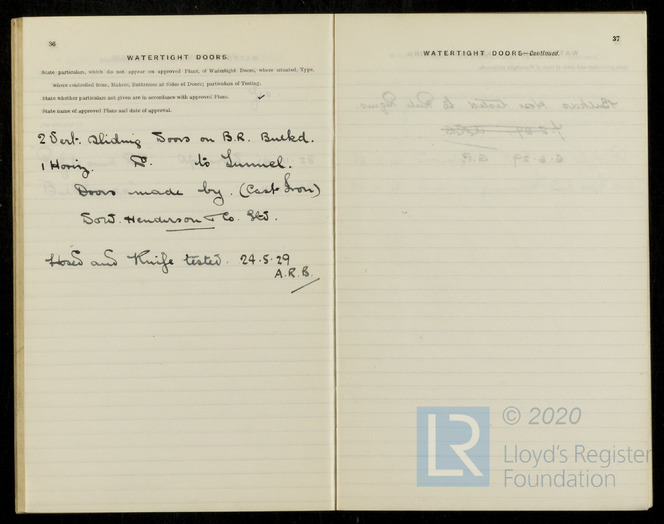 36
WATERTIGHT DOORS.
State particulars, which do not appear on approved Plans, of Watertight Doors, where situated, Type,
where controlled from, Makers, Battteness at Sides of Doors; particulars of Testing.
State whether particulars not given are in accordance with approved Plans. ✓
State name of approved Plans and date of approval.
2 Vert: Sliding Doors on B.R. Bulkd.
1 Horiz. Do. to Tunnel.
Doors made by. (Cast Iron)
Henderson & Co. Ltd.
Hosed and Knife tested. 24.5.29
A.R.B.
37
WATERTIGHT DOORS—Continued.
© 2020
LR
Lloyd's Register
Foundation